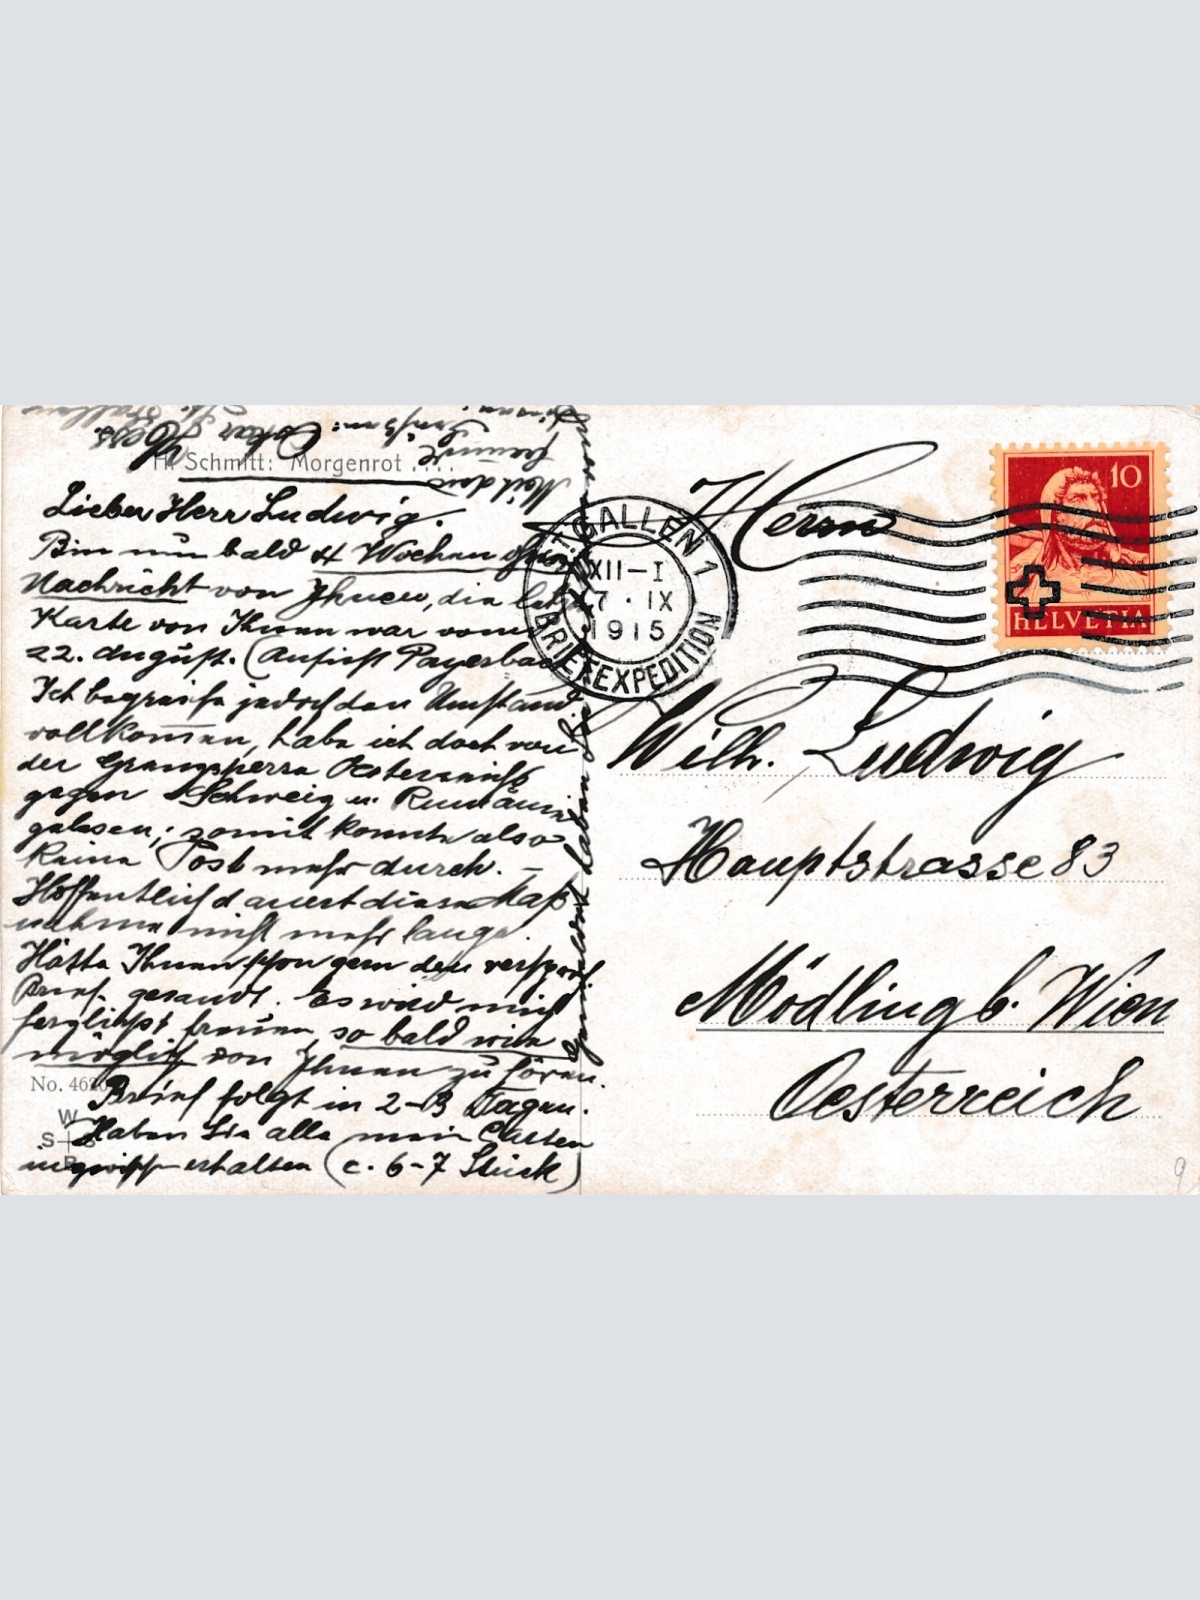 H. Schmitt: Morgenrot
Lieber Herr Ludwig.
Bin nun bald 4 Wochen ohne
Nachricht von Ihnen, die letzte
Karte von Ihnen war vom
22. August. (Ansicht Payerbach
Ich begreife jedoch den Umstand
vollkommen, habe ich doch von
der Grenzsperre Oesterreichs
gegen Schweiz u. Rumänien
gelesen; somit konnte also
keine Post mehr durch. –
Hoffentlich dauert diese Maß
nahme nicht mehr lange.
Hätte Ihnen schon gern den
Brief gesandt. Es wird mich
herzlichst freuen, so bald wie
möglich von Ihnen zu hören.
Brief folgt in 2-3 Tagen.
Haben Sie alle mein Carten
erhalten (c. 6-7 Stück)
Mit den
Oskar Hess.
No. 462
W
S
B
ST. GALLEN 1
XII–I
7. IX
1915
BRIEFEXPEDITION
10
HELVETIA
Herrn
Wilh. Ludwig
Hauptstrasse 83
Mödling b. Wien
Oesterreich
9